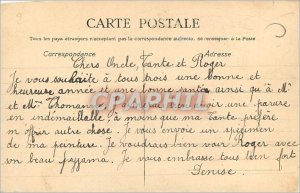 CARTE POSTALE
Tous les pays étrangers n'acceptent pas la correspondance au recto, se renseigner à la Poste
Correspondance Adresse
Chers Oncle, Tante et Roger
Je vous souhaite à tous trois une bonne et
heureuse année et une bonne santé ainsi qu'à M
et Mme Thomann voir une parure
en indémaillable à moins que ma tante préfère
m'offrir autre chose. Je vous envoie un spécimen
de ma peinture. Je voudrais bien voir Roger avec
son beau pyjama. Je vous embrasse tous bien fort
Denise.